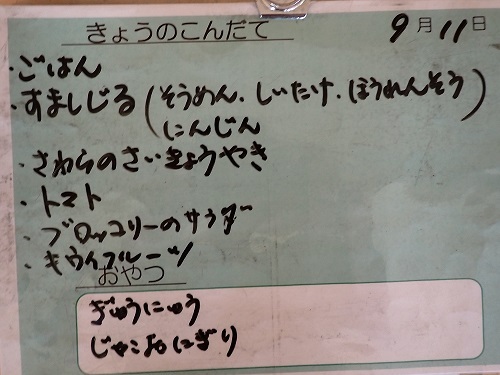 きょうのこんだて 9月11日
・ごはん
・すましじる(そうめん.しいたけ.ほうれんそう
にんじん)
・さわらのさいきょうやき
・トマト
・ブロッコリーのサラダ
・キウイフルーツ
おやつ
ぎゅうにゅう
じゃこおにぎり